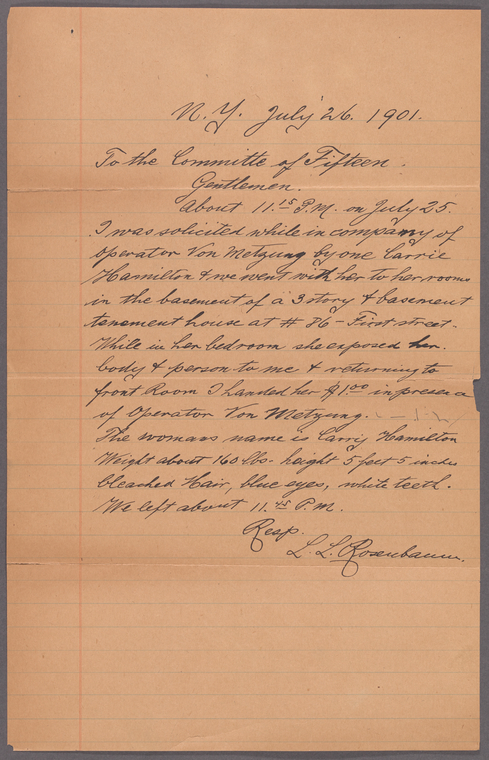 N. Y. July 26. 1901.
To the Committe of Fifteen.
Gentlemen.
About 11.15 P.M. on July 25.
I was solicited while in company of
Operator Von Metzung by one Carrie
Hamilton & we went with her to her rooms
in the basement of a 3 story & basement
tenement house at # 86 - First street.
While in her bedroom she exposed her
body & person to me & returning to
front Room I handed her $1.00 in presence
of Operator Von Metzung.
The womans name is Carry Hamilton
Weight about 160 lbs. height 5 feet 5 inches
bleached Hair, blue eyes, white teeth.
We left about 11.45 P.M.
Resp.
L. L. Rosenbaum.